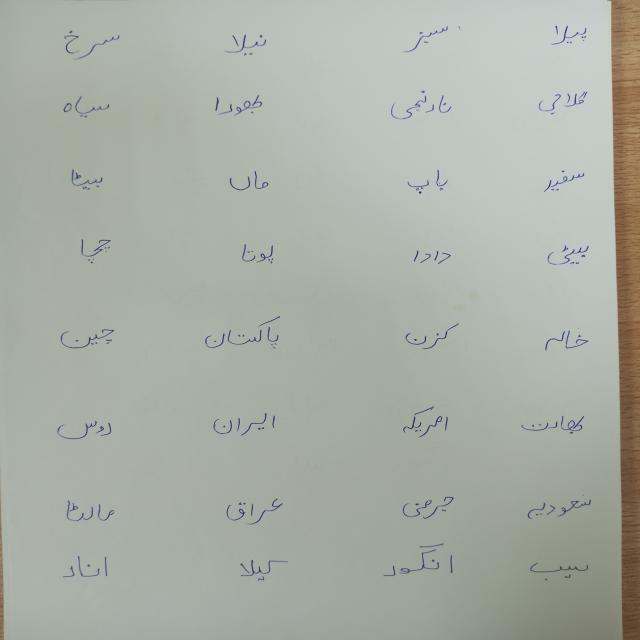 پیلا سبز نیلا سرخ
گلابی نارنجی بھورا سیاہ
سفید باپ ماں بیٹا
بیٹی دادا پوتا چچا
خالہ کزن پاکستان چین
بھارت امریکہ ایران روس
سعودیہ جرمنی عراق مالٹا
سیب انگور کیلا انار